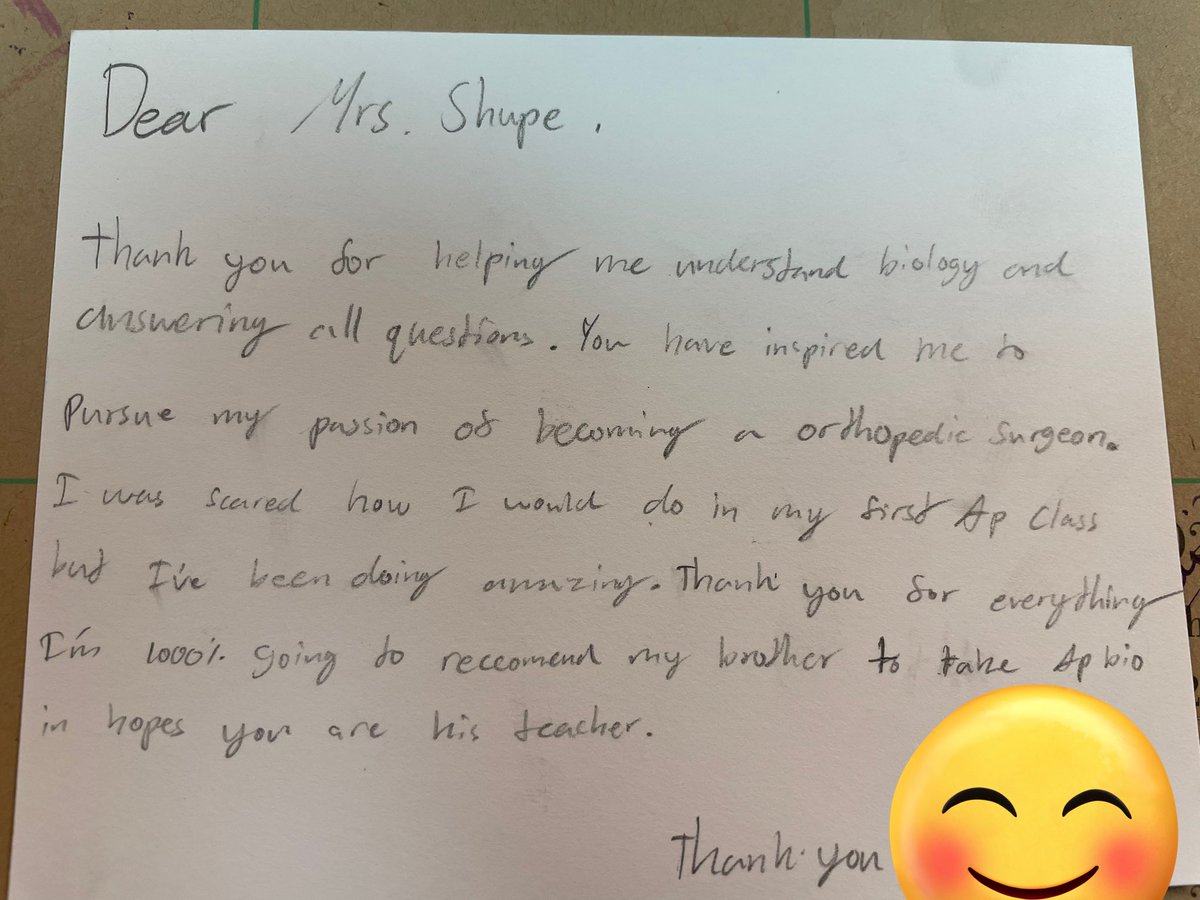 Dear Mrs. Shupe.
Thank you for helping me understand biology and
answering all questions. You have inspired me to
pursue my passion of becoming a orthopedic surgeon.
I was scared how I would do in my first Ap Class
but I've been doing amazing. Thank you for everything
I'm 1000% going to reccomend my brother to take Ap bio
in hopes you are his teacher.
Thank you